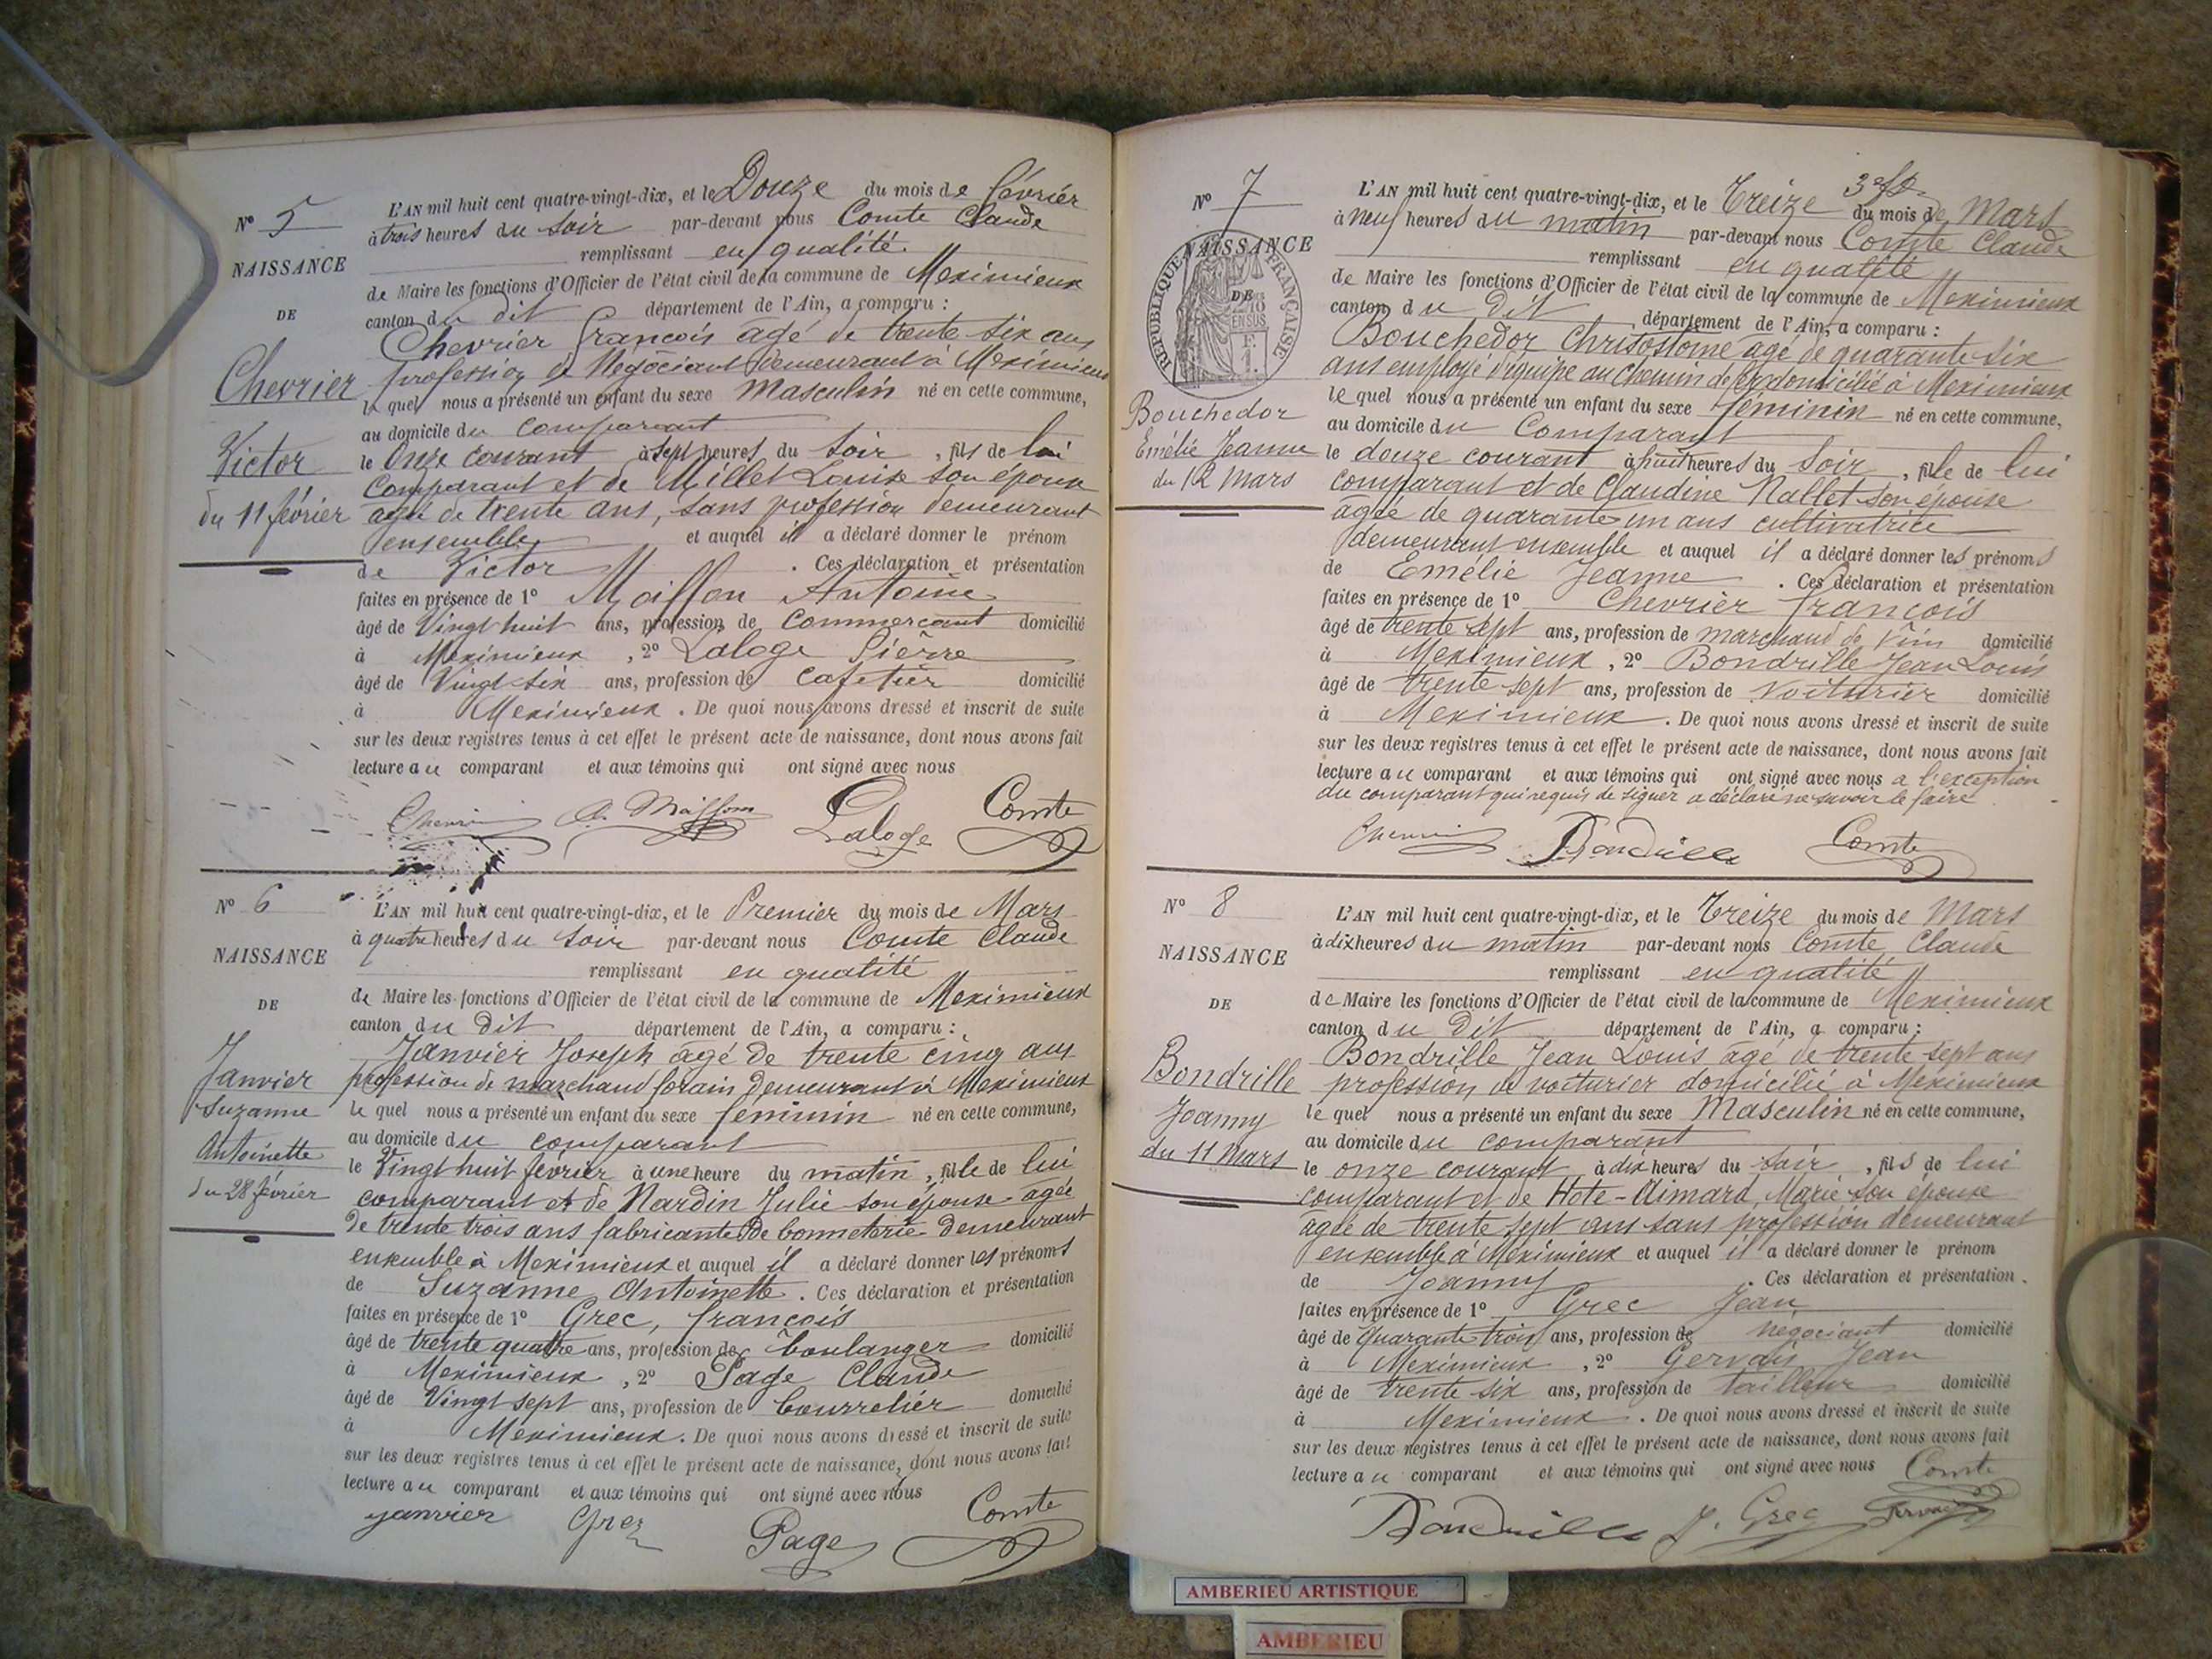 N° 5
NAISSANCE
DE
Chevrier
Victor
du 11 février
L'AN mil huit cent quatre-vingt-dix, et le Douze du mois de février
à trois heures du soir par-devant nous Comte Claude
remplissant en qualité
de Maire les fonctions d'Officier de l'état civil de la commune de Meximieux
canton du dit département de l'Ain, a comparu :
Chevrier François agé de trente six ans
profession de Négociant demeurant à Meximieux
lequel nous a présenté un enfant du sexe Masculin né en cette commune,
au domicile du comparant
le Onze courant à sept heures du soir, fils de lui
comparant et de Millet Louise son épouse
agée de trente ans, sans profession demeurant
ensemble et auquel il a déclaré donner le prénom
de Victor . Ces déclaration et présentation
faites en présence de 1° Maisson Antoine
âgé de Vingt huit ans, profession de Commerçant domicilié
à Meximieux, 2° Laloge Pierre
âgé de Vingt six ans, profession de Cafetier domicilié
à Meximieux. De quoi nous avons dressé et inscrit de suite
sur les deux registres tenus à cet effet le présent acte de naissance, dont nous avons fait
lecture au comparant et aux témoins qui ont signé avec nous
A. Maisson Laloge Comte
N° 6
NAISSANCE
DE
Janvier
Suzanne
Antoinette
du 28 février
L'AN mil huit cent quatre-vingt-dix, et le Premier du mois de Mars
à quatre heures du soir par-devant nous Comte Claude
remplissant en qualité
de Maire les fonctions d'Officier de l'état civil de la commune de Meximieux
canton du dit département de l'Ain, a comparu :
Janvier Joseph agé de trente cinq ans
profession de marchand forain demeurant à Meximieux
lequel nous a présenté un enfant du sexe féminin né en cette commune,
au domicile du comparant
le Vingt huit février à une heure du matin, fille de lui
comparant et de Nardin Julie son épouse agée
de trente trois ans fabricante de bonneterie demeurant
ensemble à Meximieux et auquel il a déclaré donner les prénoms
de Suzanne Antoinette. Ces déclaration et présentation
faites en présence de 1° Grec, françois
âgé de trente quatre ans, profession de boulanger domicilié
à Meximieux, 2° Page Claude
âgé de Vingt sept ans, profession de bourrelier domicilié
à Meximieux. De quoi nous avons dressé et inscrit de suite
sur les deux registres tenus à cet effet le présent acte de naissance, dont nous avons fait
lecture au comparant et aux témoins qui ont signé avec nous
janvier Grec Page Comte
N° 7
NAISSANCE
DE
RÉPUBLIQUE FRANÇAISE
EN SUS
Bouchedor
Emélie Jeanne
du 12 Mars
L'AN mil huit cent quatre-vingt-dix, et le Treize du mois de Mars
à neuf heures du matin par-devant nous Comte Claude
remplissant en qualité
de Maire les fonctions d'Officier de l'état civil de la commune de Meximieux
canton du dit département de l'Ain, a comparu :
Bouchedor Chrisostome agé de quarante six
ans employé d'équipe au chemin de fer domicilié à Meximieux
lequel nous a présenté un enfant du sexe féminin né en cette commune,
au domicile du Comparant
le douze courant à huit heures du soir, fille de lui
comparant et de Claudine Nallet son épouse
agée de quarante un ans cultivatrice
demeurant ensemble et auquel il a déclaré donner les prénoms
de Emélie Jeanne . Ces déclaration et présentation
faites en présence de 1° Chevrier françois
âgé de trente sept ans, profession de marchand de vin domicilié
à Meximieux, 2° Bondrille Jean Louis
âgé de trente sept ans, profession de Voiturier domicilié
à Meximieux. De quoi nous avons dressé et inscrit de suite
sur les deux registres tenus à cet effet le présent acte de naissance, dont nous avons fait
lecture au comparant et aux témoins qui ont signé avec nous a l'exception
du comparant qui requis de signer a déclaré ne savoir le faire
Bondrille Comte
N° 8
NAISSANCE
DE
Bondrille
Joanny
du 11 Mars
L'AN mil huit cent quatre-vingt-dix, et le Treize du mois de Mars
à dix heures du matin par-devant nous Comte Claude
remplissant en qualité
de Maire les fonctions d'Officier de l'état civil de la commune de Meximieux
canton du dit département de l'Ain, a comparu :
Bondrille Jean Louis agé de trente sept ans
profession de voiturier domicilié à Meximieux
lequel nous a présenté un enfant du sexe Masculin né en cette commune,
au domicile du comparant
le onze courant à dix heures du soir, fils de lui
comparant et de Hote-Aimard Marie son épouse
agée de trente sept ans sans profession demeurant
ensemble à Meximieux et auquel il a déclaré donner le prénom
de Joanny . Ces déclaration et présentation
faites en présence de 1° Grec Jean
âgé de quarante trois ans, profession de négociant domicilié
à Meximieux, 2° Gervais Jean
âgé de trente six ans, profession de tailleur domicilié
à Meximieux. De quoi nous avons dressé et inscrit de suite
sur les deux registres tenus à cet effet le présent acte de naissance, dont nous avons fait
lecture au comparant et aux témoins qui ont signé avec nous Comte
Bondrille J. Grec Gervais
AMBERIEU ARTISTIQUE
AMBERIEU